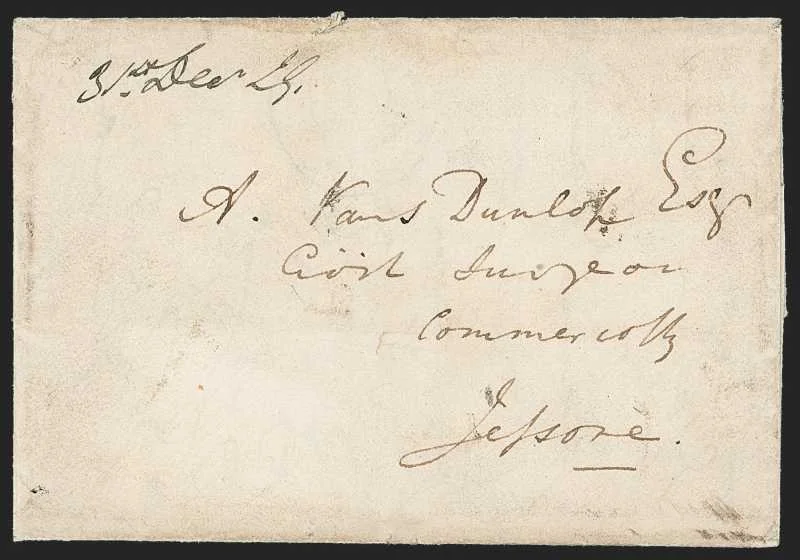 31st Decr 29.
A. Vans Dunlop Esqr
Civil Surgeon
Commercolly
Jessore.